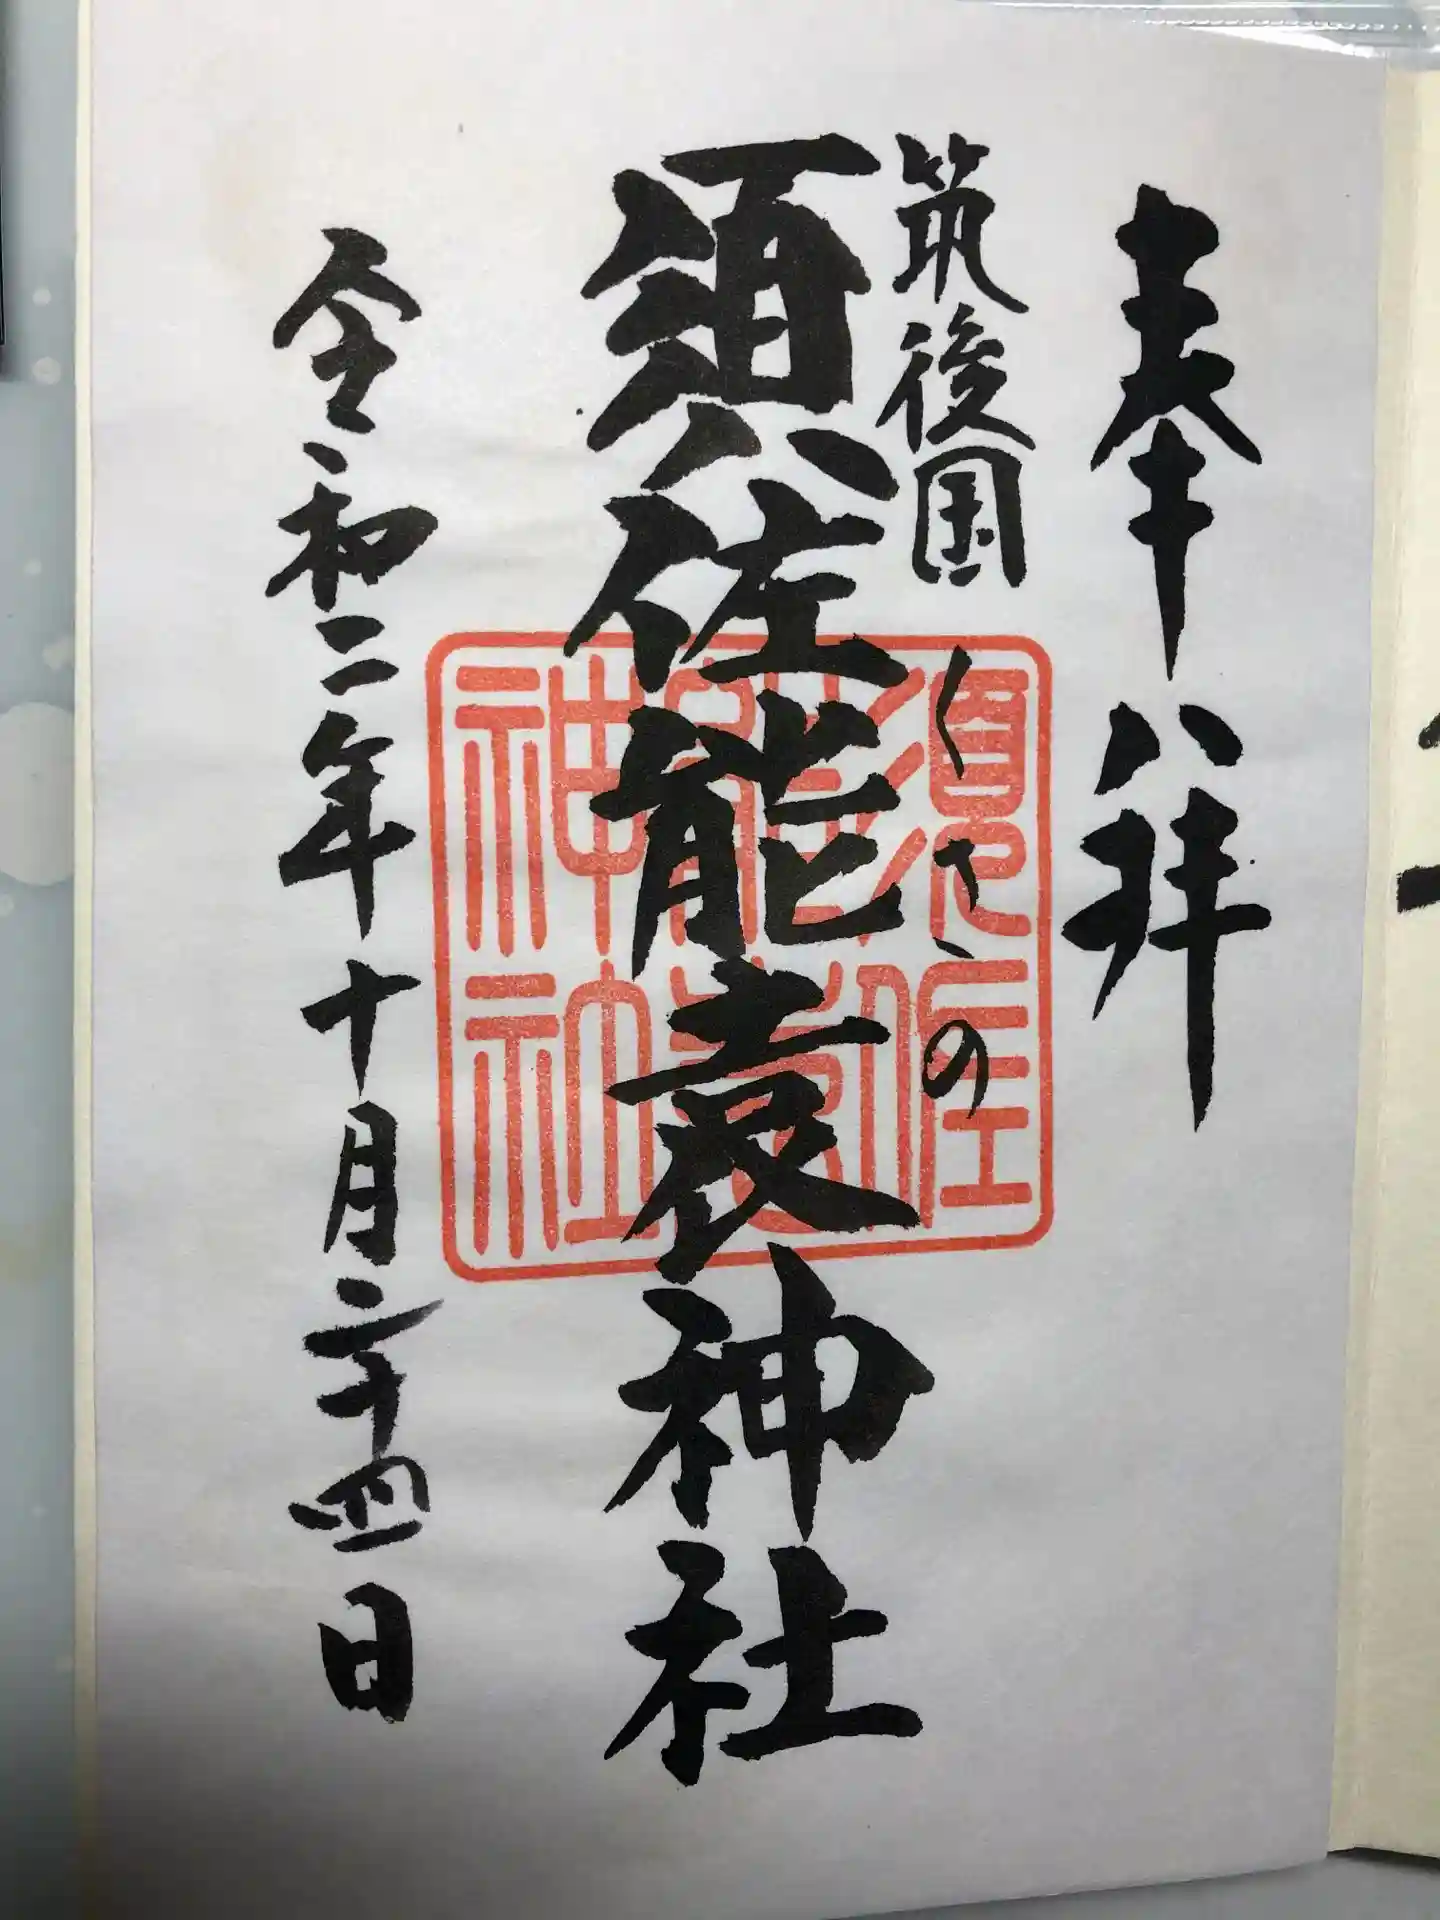 奉拝
筑後国くさの
須佐能袁神社
令和二年十月二十四日
須佐
能袁
神社